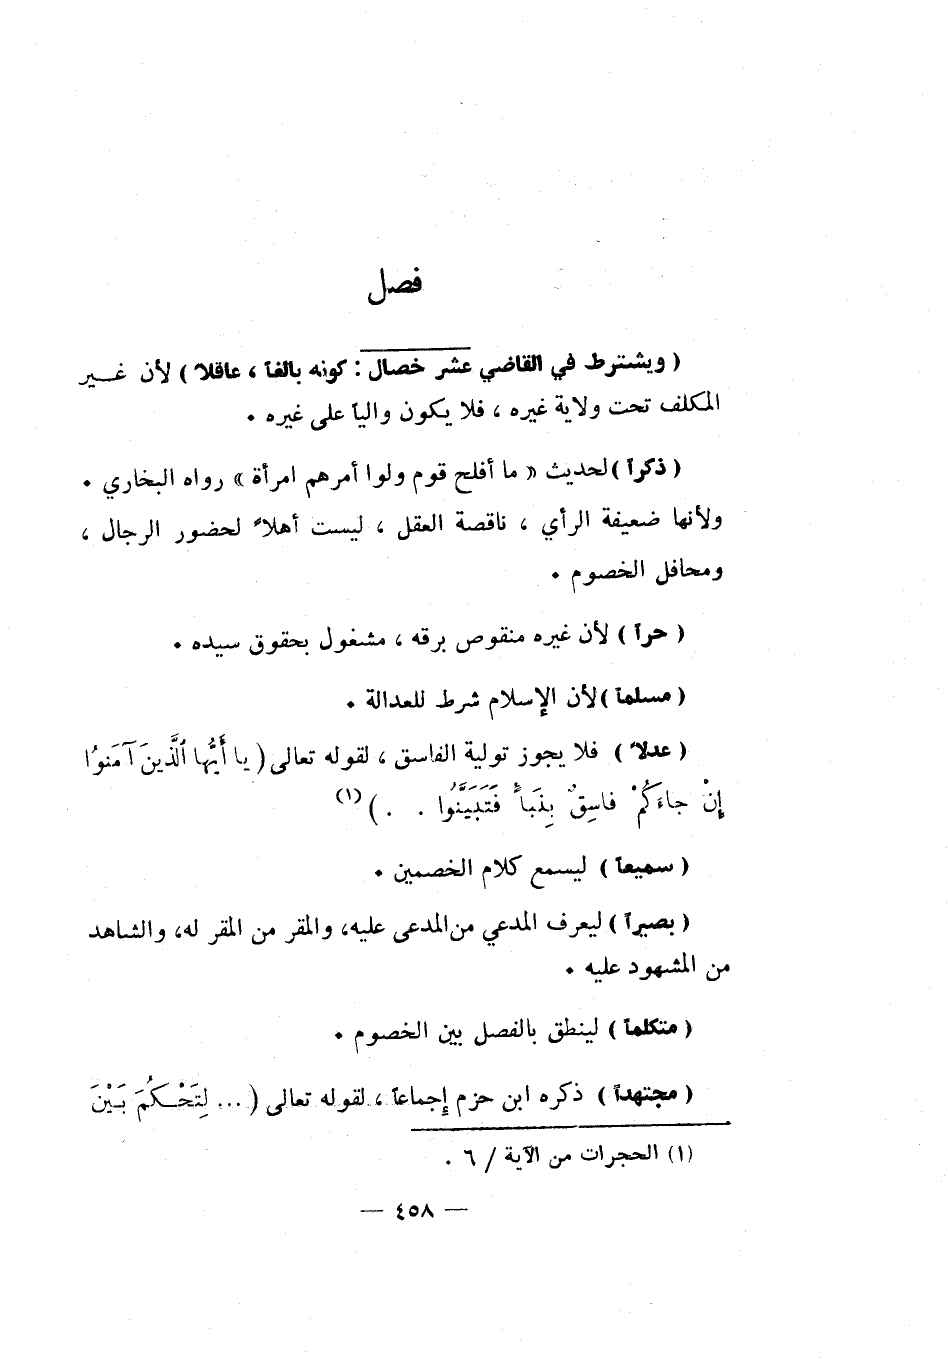 فصل
( ويشترط في القاضي عشر خصال : كونه بالغاً ، عاقلاً ) لأن غـــير
المكلف تحت ولاية غيره ، فلا يكون والياً على غيره .
( ذكراً ) لحديث « ما أفلح قوم ولوا أمرهم امرأة » رواه البخاري .
ولأنها ضعيفة الرأي ، ناقصة العقل ، ليست أهلاً لحضور الرجال ،
ومحافل الخصوم .
( حراً ) لأن غيره منقوص برقه ، مشغول بحقوق سيده .
( مسلماً ) لأن الإسلام شرط للعدالة .
( عدلاً ) فلا يجوز تولية الفاسق ، لقوله تعالى ( يا أَيُّها ٱلَّذينَ آمَنوُا
إِنْ جاءَكُمْ فاسِقٌ بِنَبأٍ فَتَبَيَّنُوا . . ) (١)
( سميعاً ) ليسمع كلام الخصمين .
( بصيراً ) ليعرف المدعي من المدعى عليه، والمقر من المقر له، والشاهد
من المشهود عليه .
( متكلماً ) لينطق بالفصل بين الخصوم .
( مجتهداً ) ذكره ابن حزم إجماعاً ، لقوله تعالى ( ... لِتَحْـكُمَ بَـيْنَ
(١) الحجرات من الآية / ٦ .
— ٤٥٨ —